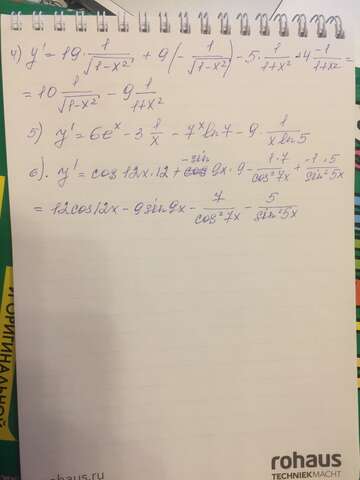 4) y' = 19 · 1/√(1-x²) + 9 (- 1/√(1-x²)) - 5 · 1/(1+x²) + 4 -1/(1+x²) =
= 10 1/√(1-x²) - 9 1/(1+x²)
5) y' = 6e^x - 3 1/x - 7^x ln7 - 9 · 1/(x ln5)
6). y' = cos 12x · 12 + -sin 9x · 9 - 1·7/cos²7x + -1·5/sin²5x
= 12cos12x - 9sin9x - 7/cos²7x - 5/sin²5x
И ОРИГИНАЛЬНОЙ
rohaus
TECHNIEKMACHT
rohaus.ru